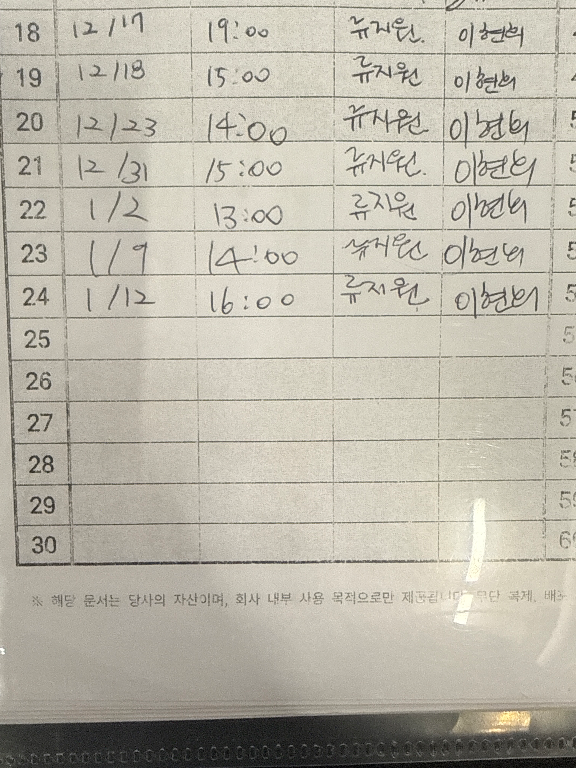 18 12/17 19:00 류지원. 이현희
19 12/18 15:00 류지원 이현희
20 12/23 14:00 류지원 이현희
21 12/31 15:00 류지원. 이현희
22 1/2 13:00 류지원 이현희
23 1/9 14:00 류지원 이현희
24 1/12 16:00 류지원 이현희
25
26
27
28
29
30
※ 해당 문서는 당사의 자산이며, 회사 내부 사용 목적으로만 제공됩니다. 무단 복제, 배포